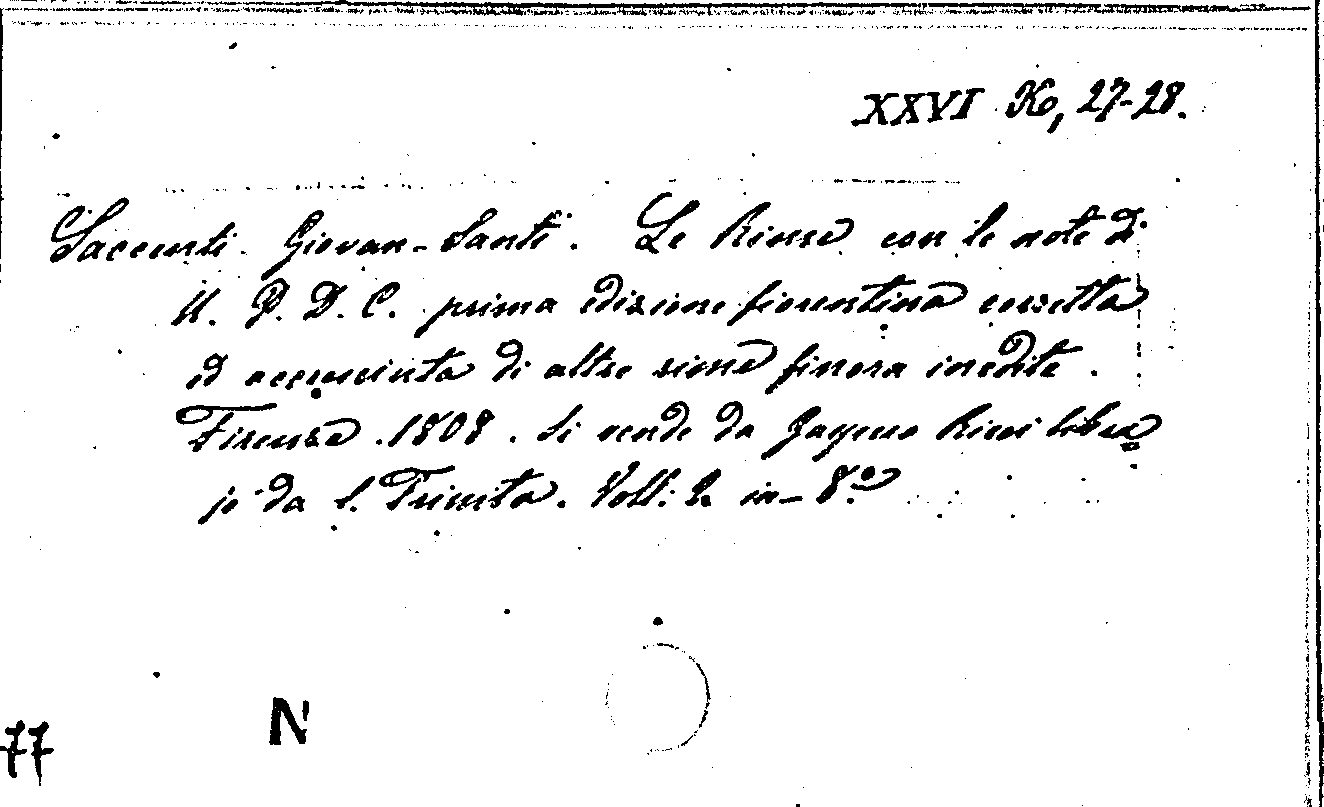 XXVI K6, 27-28.
Saccenti Giovan-Santi. Le Rime con le note di
U. P. D. C. prima edizione fiorentina corretta
ed accresciuta di altre rime finora inedite.
Firenze. 1808. Si vende da Jacopo Ricci libra
jo da S. Trinita. Voll: 2 in-8.º
N
77